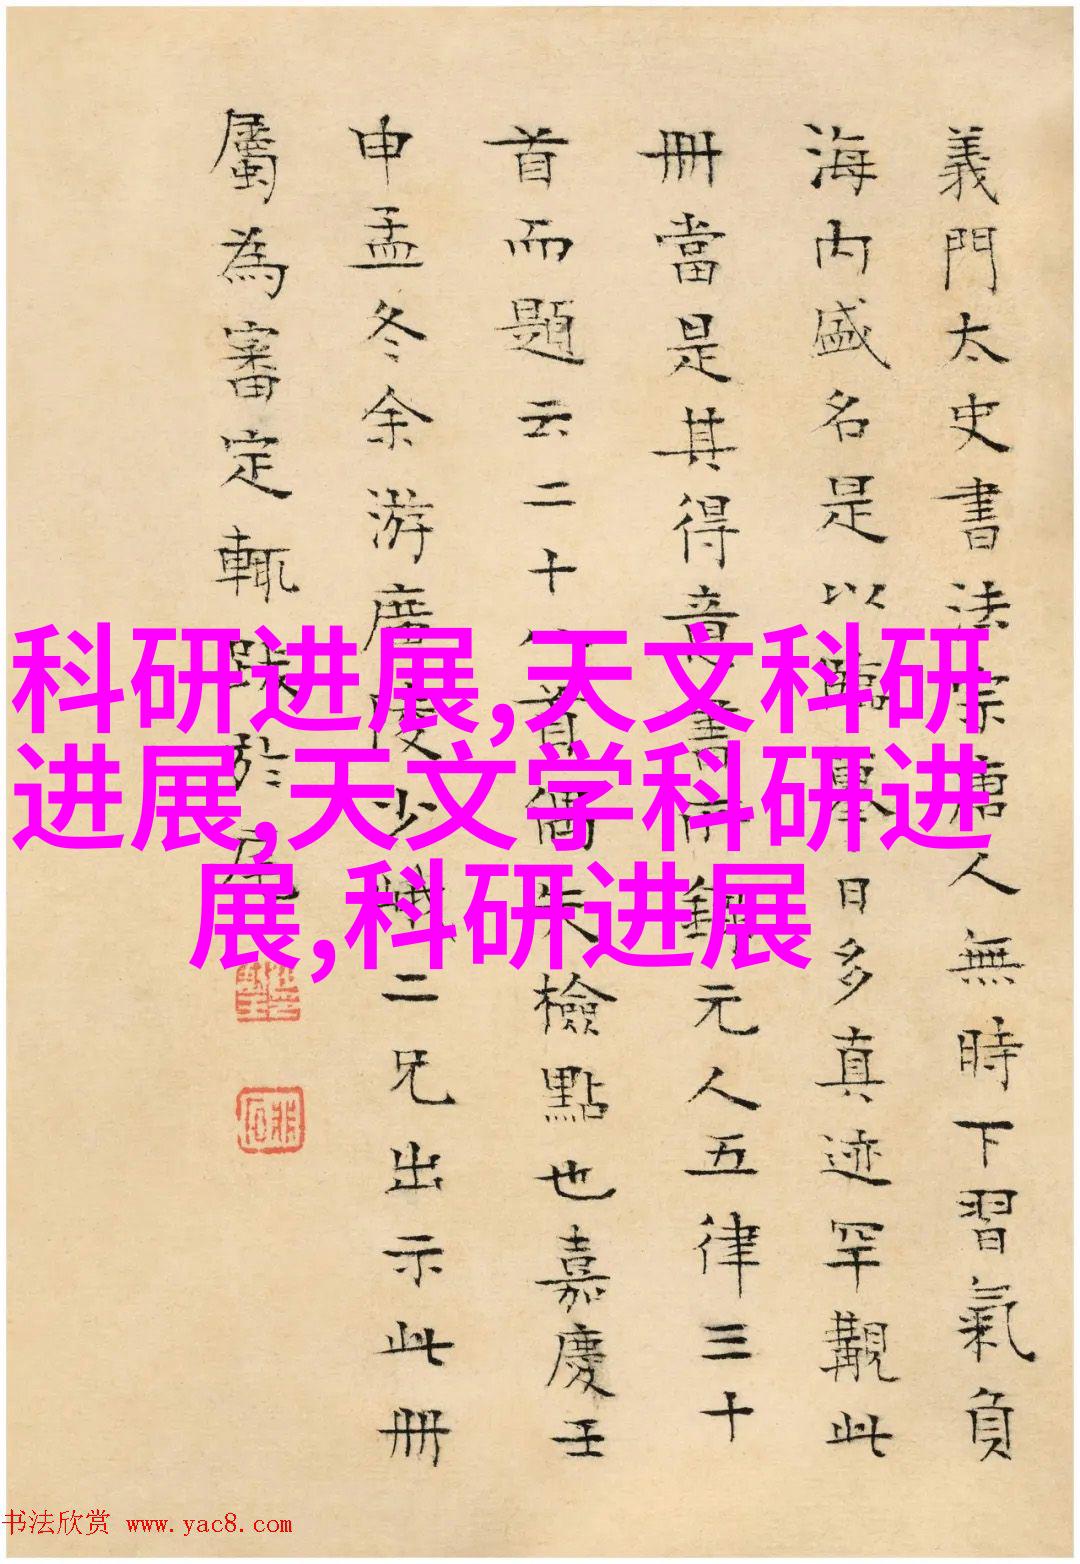 義門太史書法宗唐人無時下習氣負
海内盛名是以臨摹日多真迹罕觏此
冊當是其得意書所錄元人五律三十
首而題云二十八首偶失檢點也嘉慶壬
申孟冬余游廣陵少峨二兄出示此冊
屬為審定輒跋於尾
科研进展,天文科研
进展,天文学科研进
展,科研进展
书法欣赏 www.yac8.com